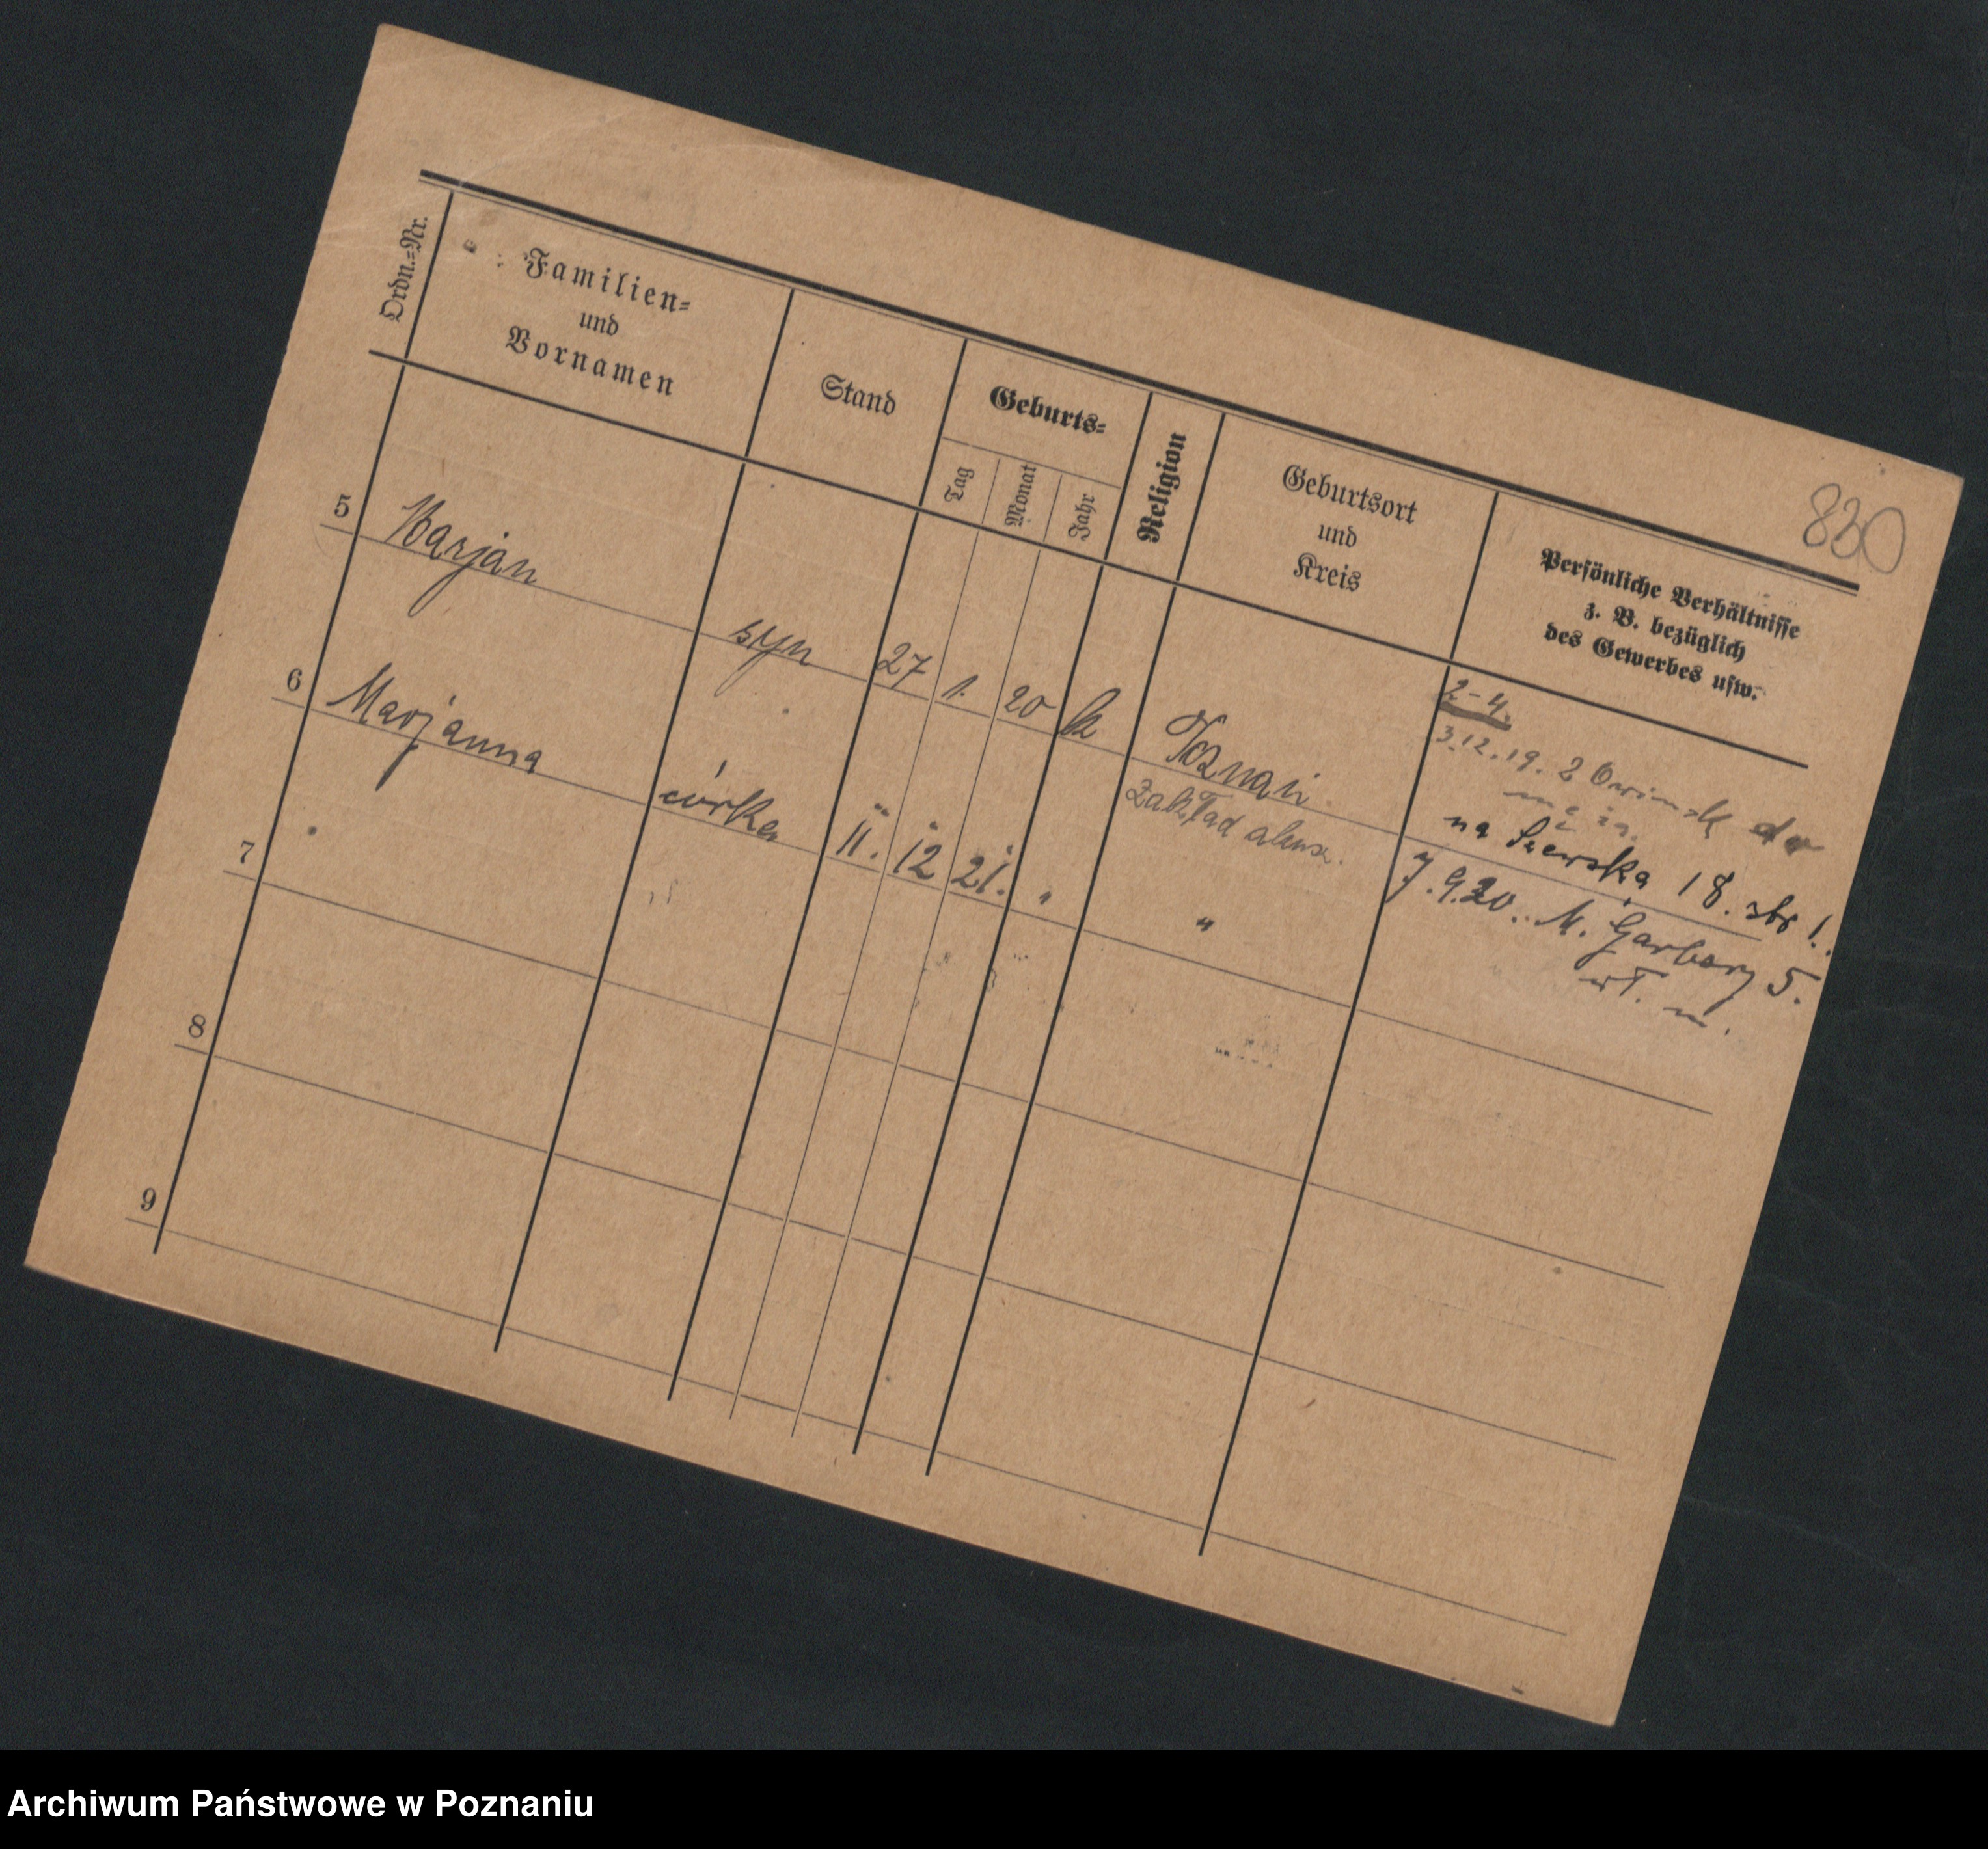 830
Ordn.=Nr.
Familien=
und
Vornamen
Stand
Geburts=
Tag
Monat
Jahr
Religion
Geburtsort
und
Kreis
Persönliche Verhältnisse
z. B. bezüglich
des Gewerbes usw.
5 Marjan syn 27 1. 20 k Poznań
Zakład
2-4.
3.12.19.
na Szewska 18.
6 Marjanna córka 11. 12 21. " "
7.9.20. M. Garbary 5.
7
8
9
Archiwum Państwowe w Poznaniu